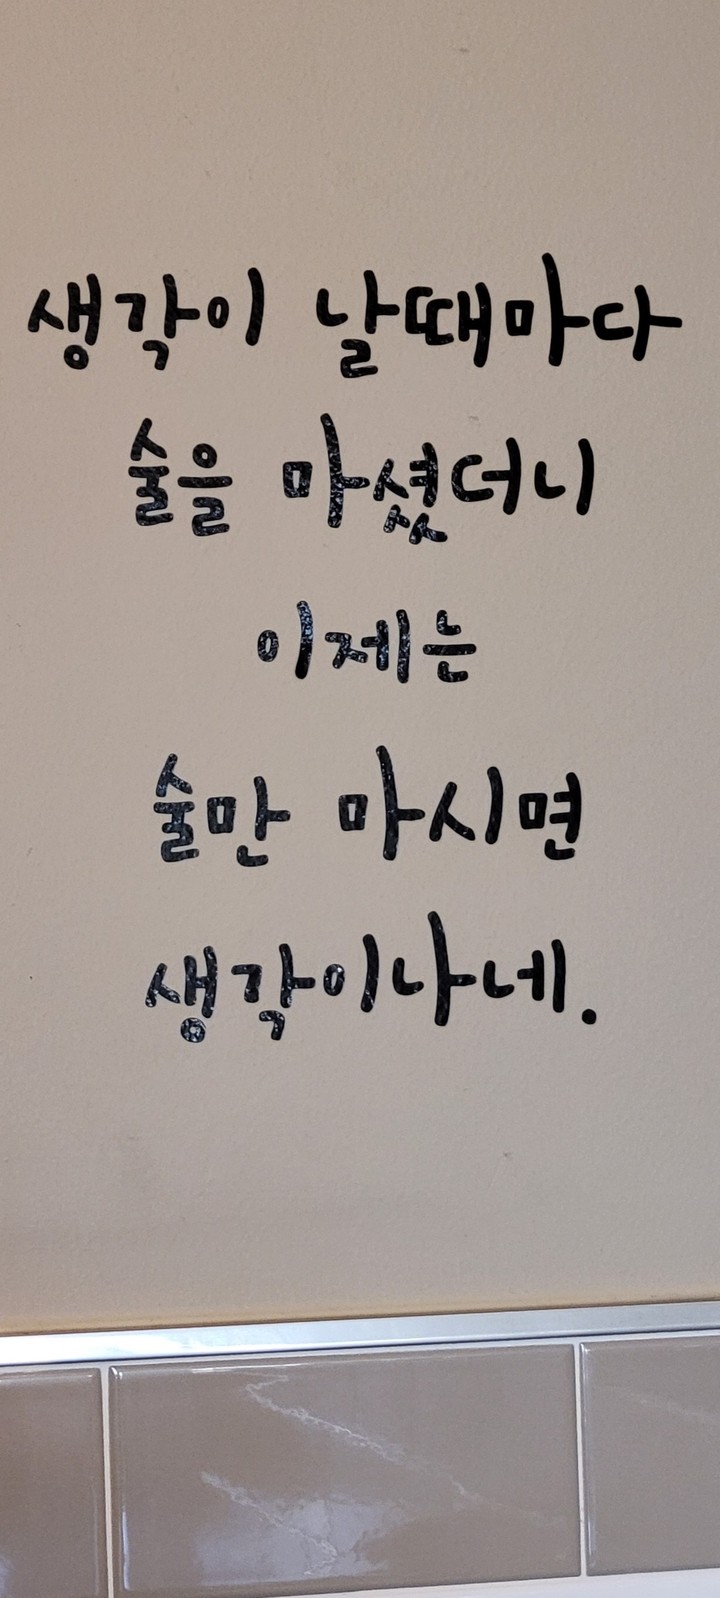 생각이 날때마다
술을 마셨더니
이제는
술만 마시면
생각이나네.